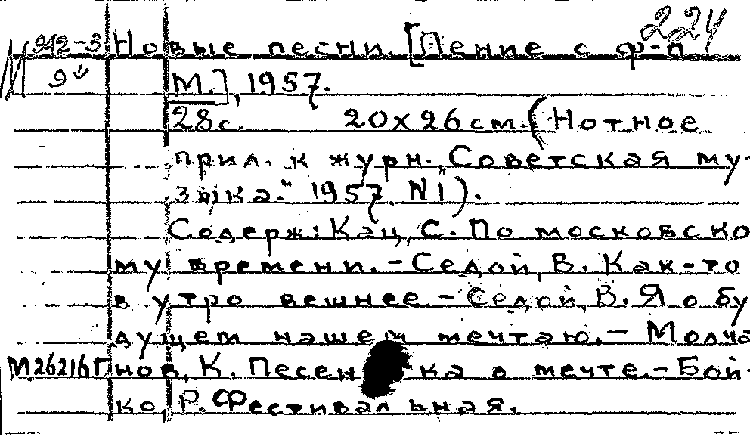 224
М 942-3 Новые песни. [Пение с ф-п
9" М.], 1957.
28с. 20х26см. (Нотное
прил. к журн. „Советская му-
зыка." 1957, N1).
Содерж: Кац, С. По московско
му времени. - Седой, В. Как-то
в утро вешнее. - Седой, В. Я о бу
дущем нашем мечтаю. - Молча
М26216г нов, К. Песенка о мечте. - Бой-
ко, Р. Фестивальная.